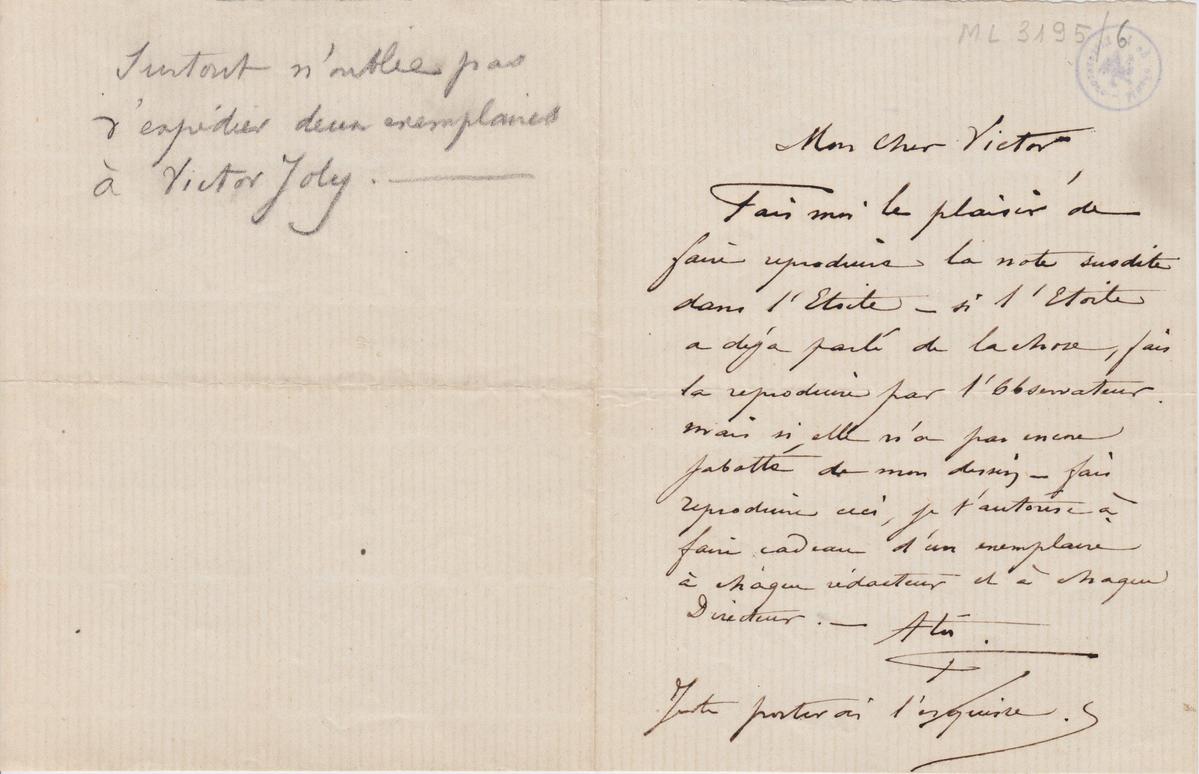 Surtout n'oublie pas
d'expédier deux exemplaires
à Victor Joly. —
ML 3195/6
Mon cher Victor
Fais moi le plaisir de
faire reproduire la note susdite
dans l'Etoile — si l'Etoile
a déjà parlé de la chose, fais
la reproduire par l'Observateur.
mais si elle n'a pas encore
de mon dessin — fais
reproduire ceci, je t'autorise à
faire cadeau d'un exemplaire
à chaque rédacteur et à chaque
Directeur. —
porterai l'esquisse.